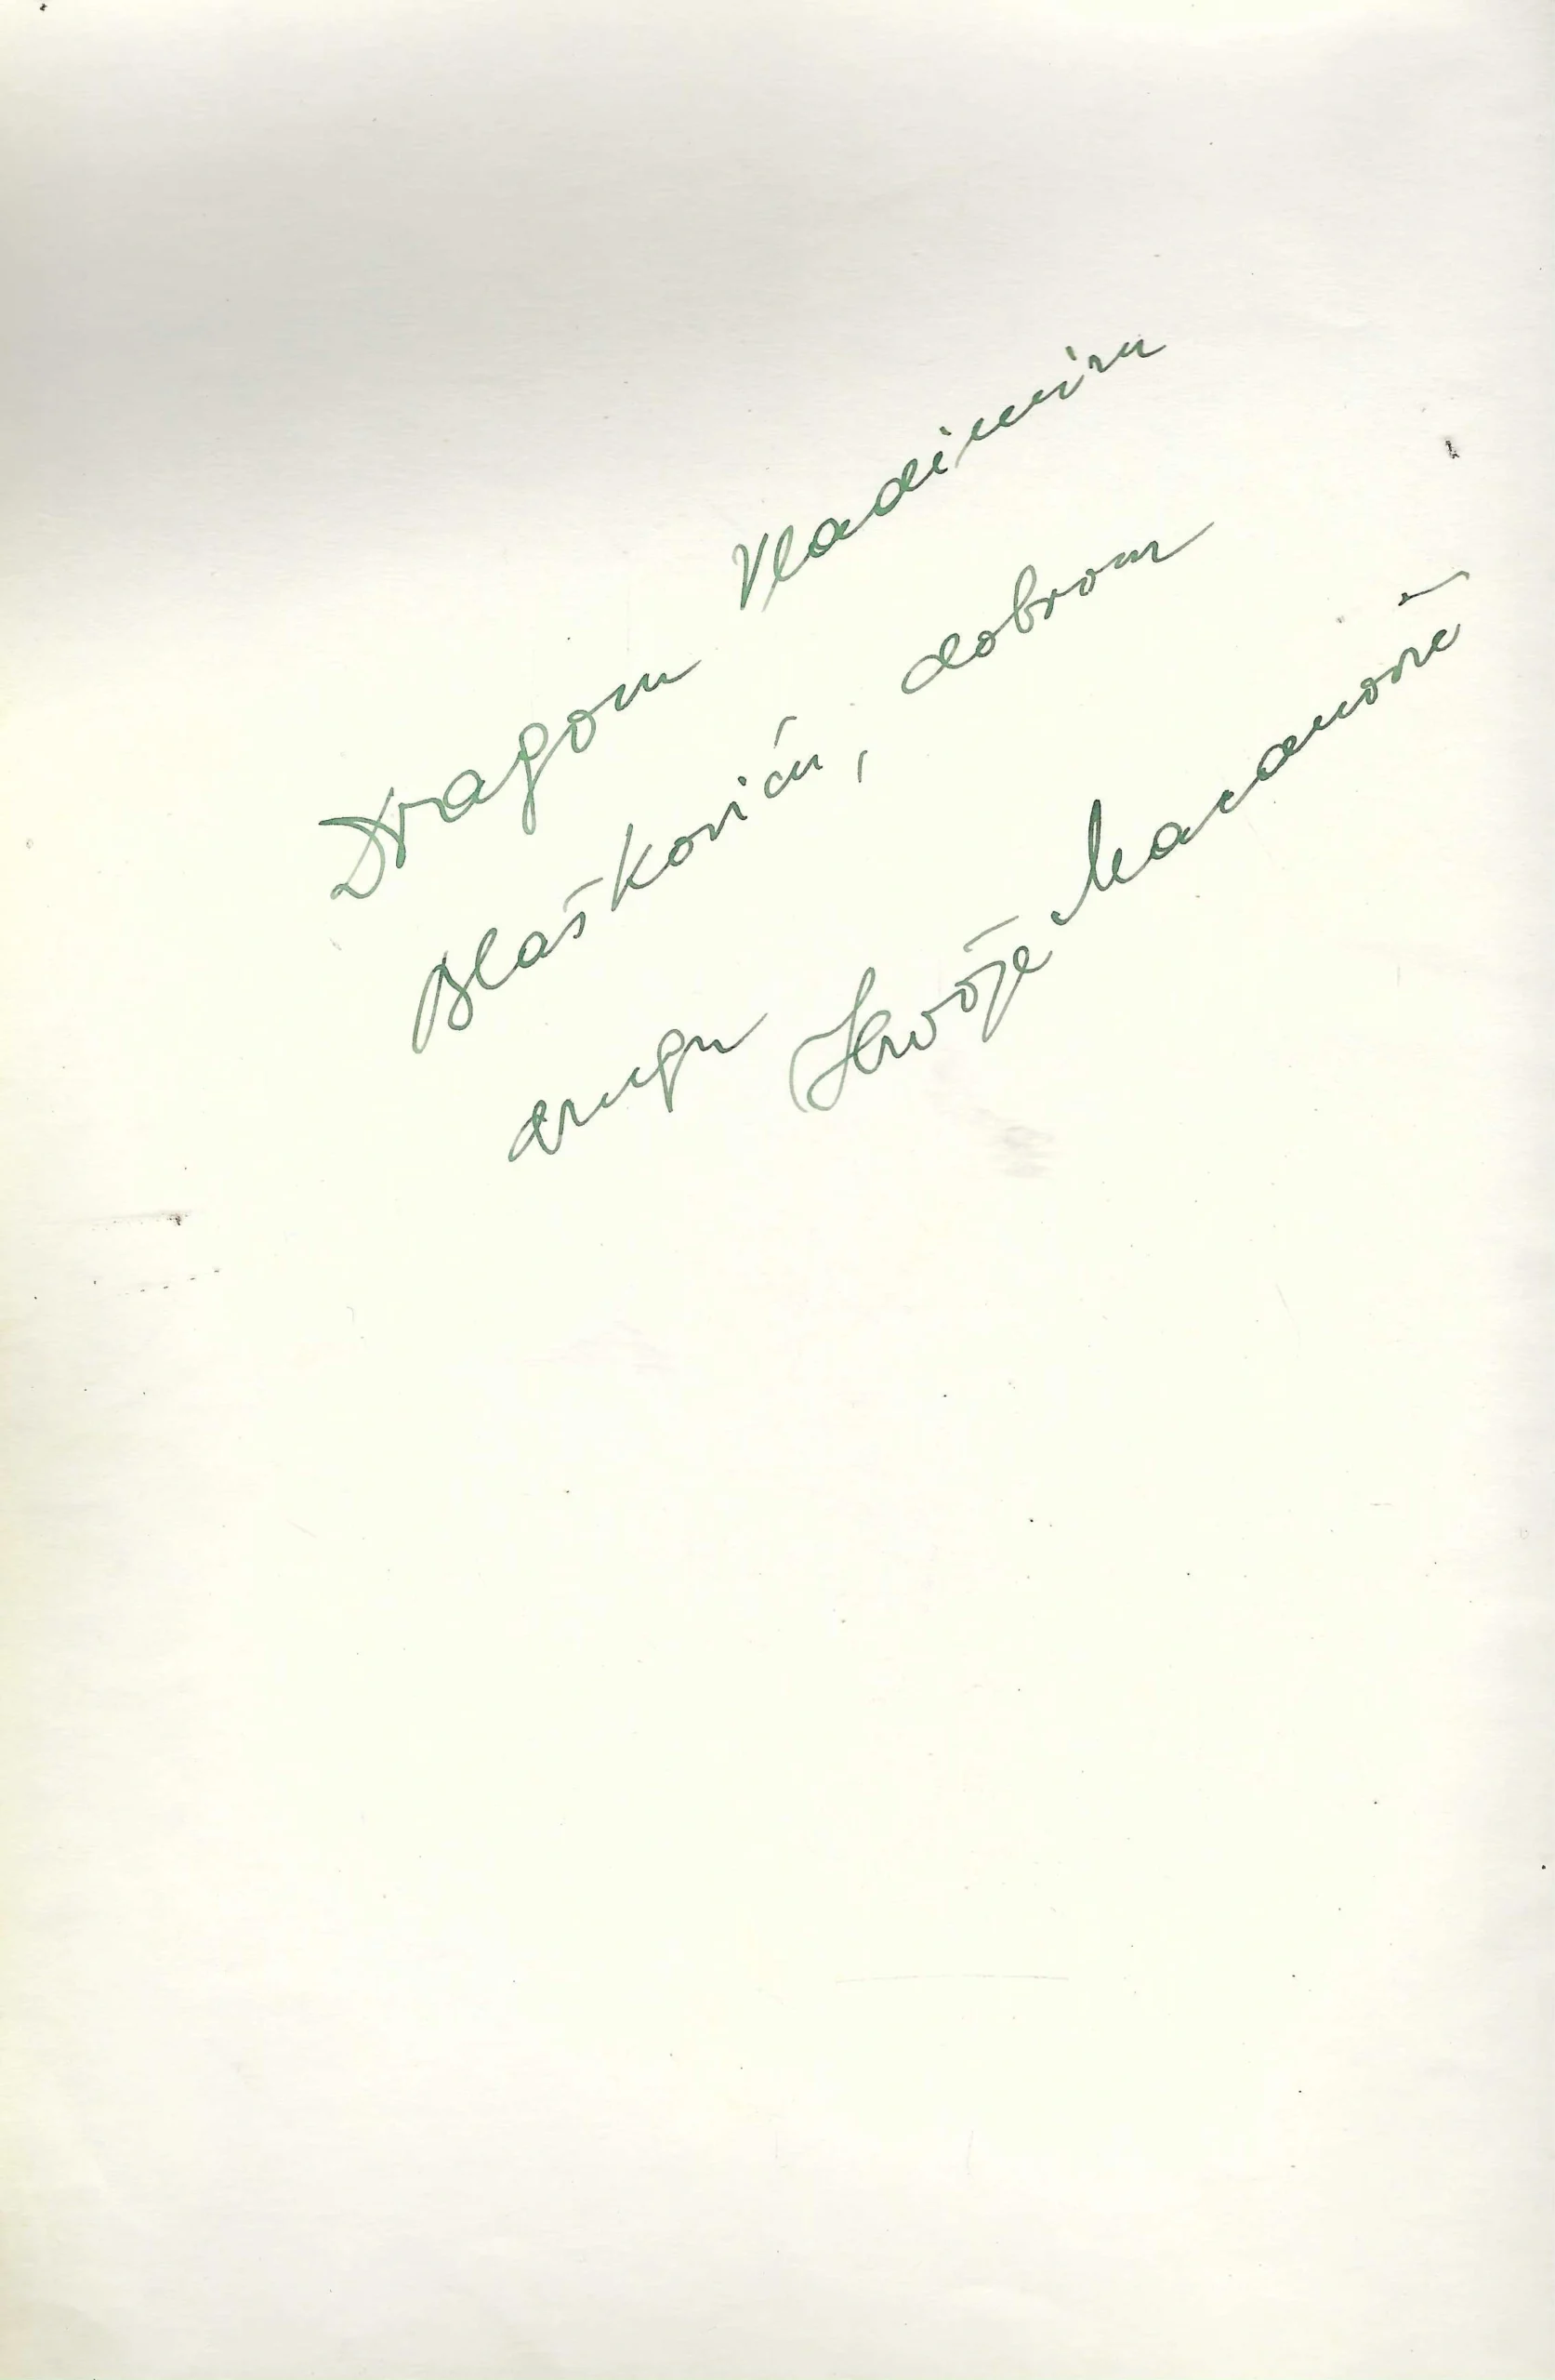 Dragom Vladimiru
Blaškoviću, dobrom
drugu Hrvoje Macanović